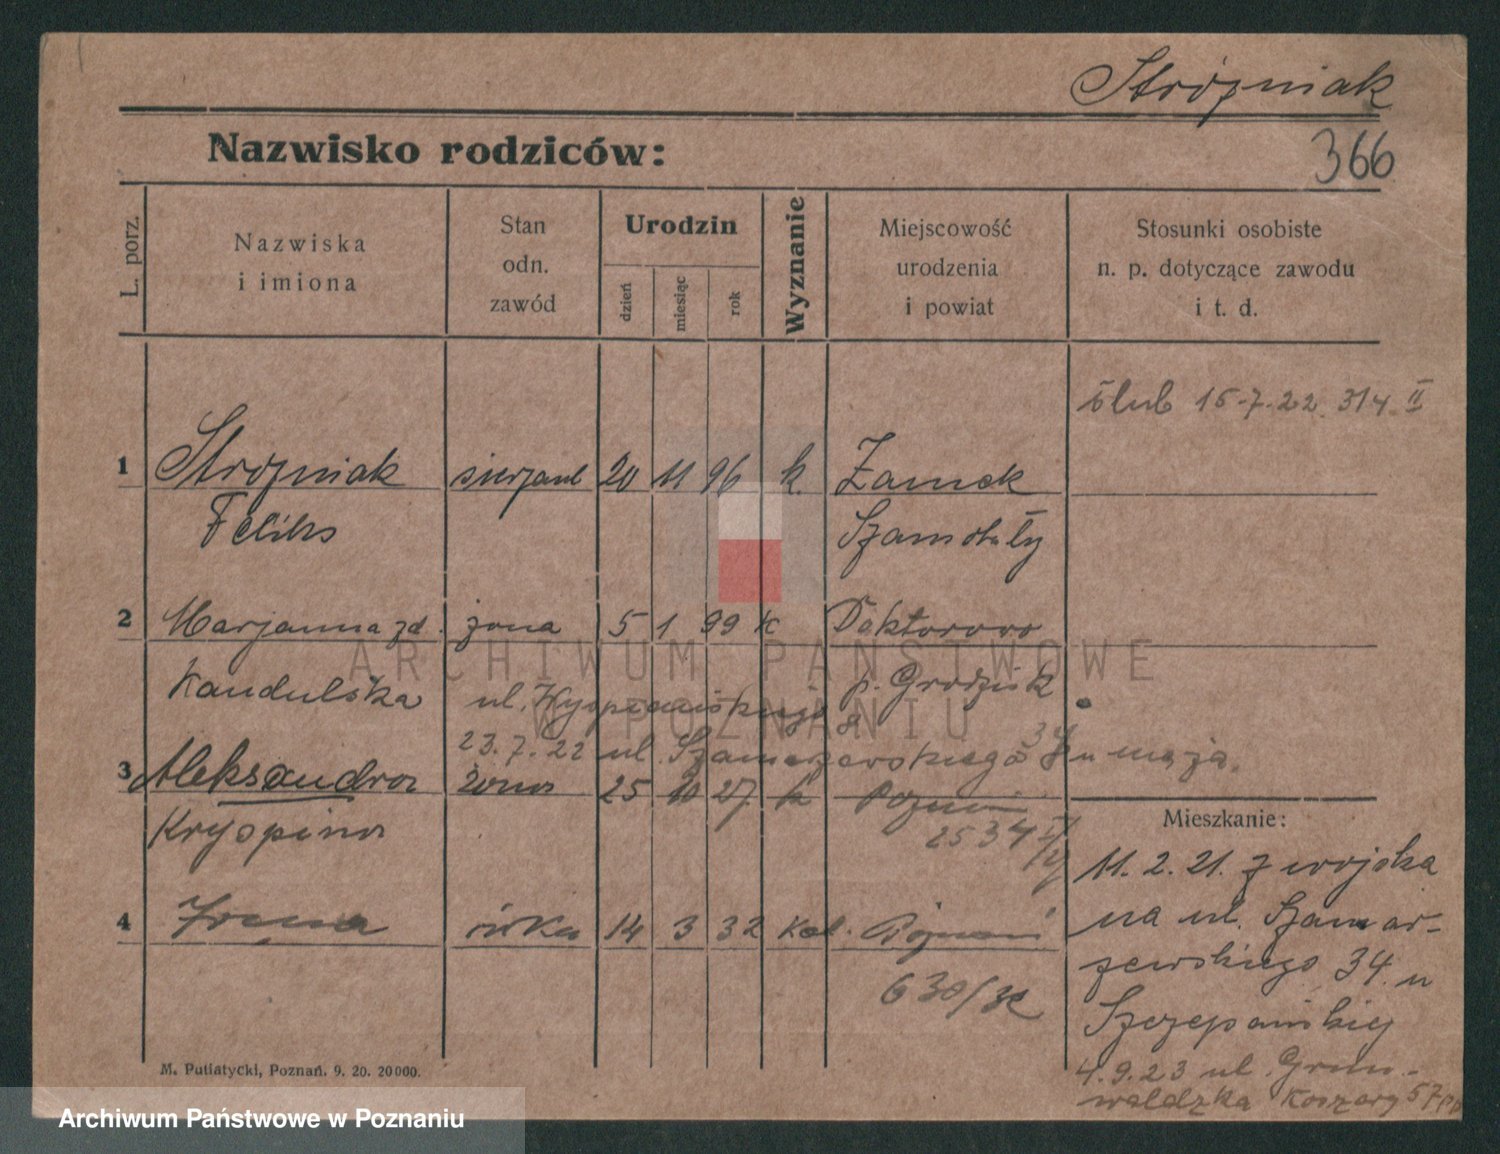 Stróżniak
366
Nazwisko rodziców:
L. porz.
Nazwiska
i imiona
Stan
odn.
zawód
Urodzin
dzień
miesiąc
rok
Wyznanie
Miejscowość
urodzenia
i powiat
Stosunki osobiste
n. p. dotyczące zawodu
i t. d.
ślub 15.7.22 314 II
1 Stróżniak sierżant 20 11 96 k. Zamek
Feliks Szamotuły
2 Marjanna zd. żona 5 1 99 k Doktorowo
Kandulska p. Grodzisk
ul. Wyspiańskiego 8
23.7.22 ul. Szamarzewskiego 34 u maja.
3 Aleksandra 25 10 27 k Poznań
Kryspina 2534
4 Irena córka 14 3 32 kat. Poznań
630/32
Mieszkanie:
11. 2. 21. z wojska
na ul. Szamar-
zewskiego 34 u
Szczepańskiej
4.9.23 ul. Grun-
waldzka Koszary 57pp
M. Putiatycki, Poznań. 9. 20. 20000.
ARCHIWUM PAŃSTWOWE
W POZNANIU
Archiwum Państwowe w Poznaniu